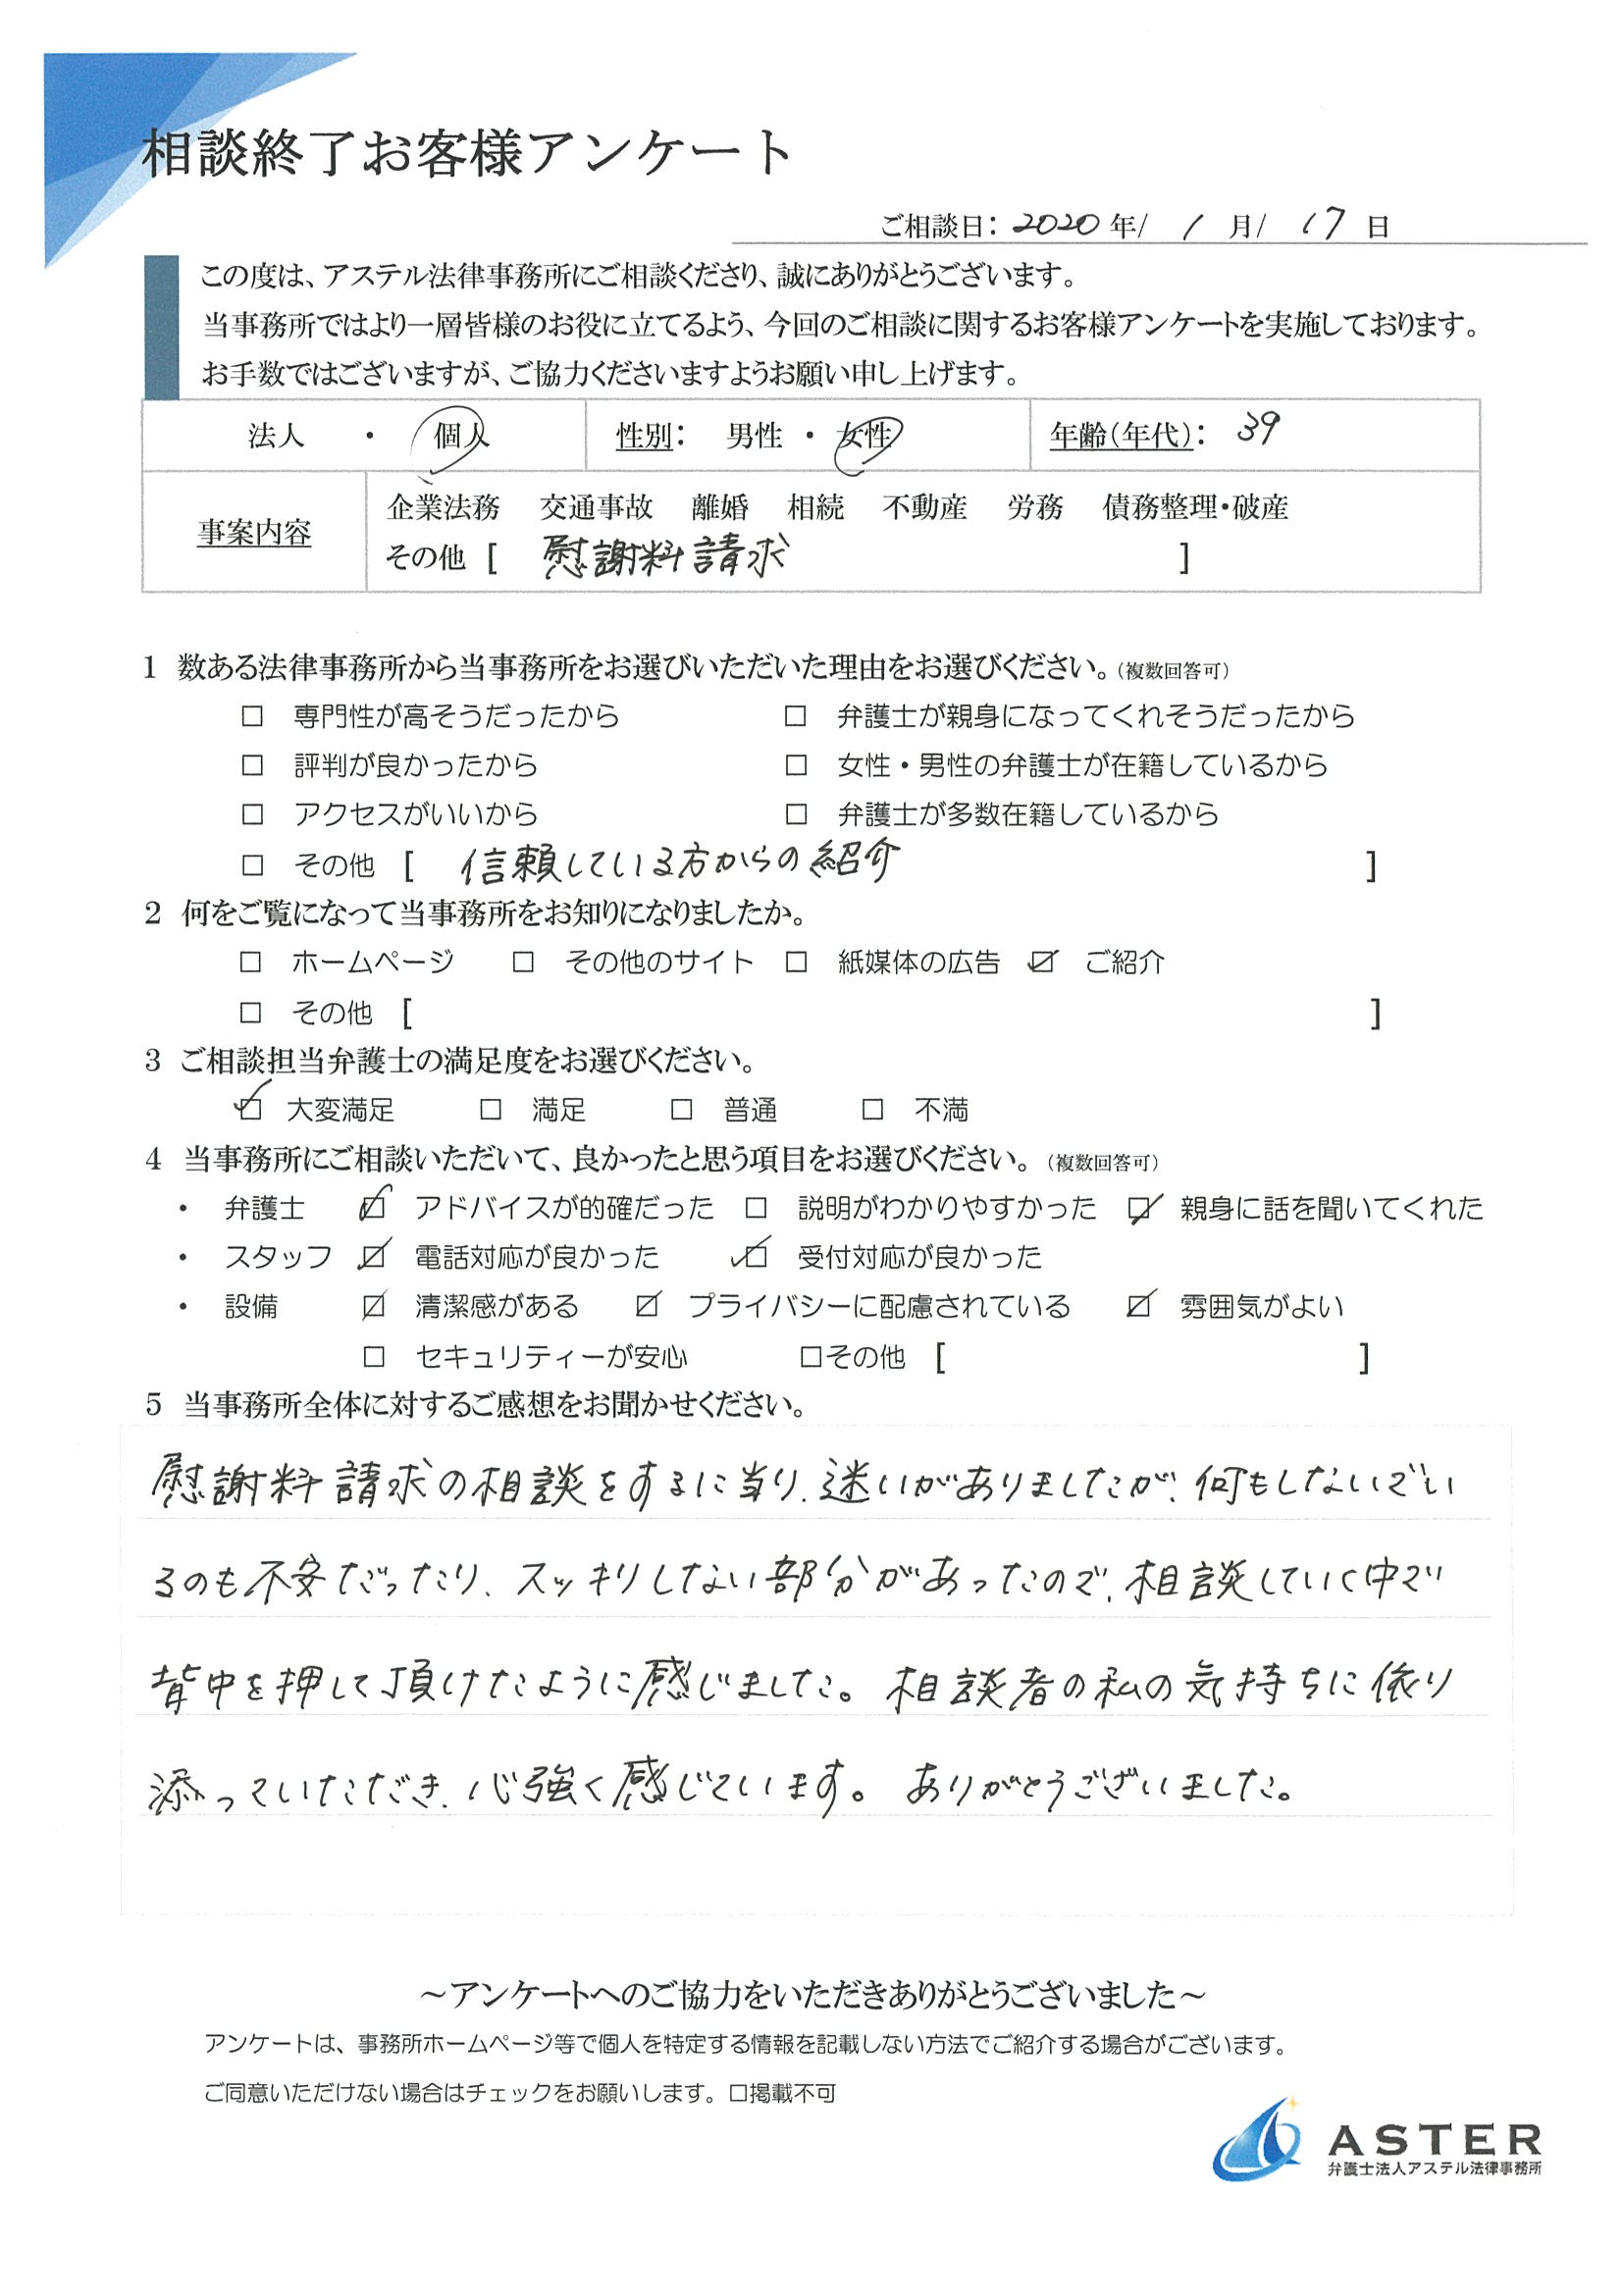 相談終了お客様アンケート
ご相談日: 2020 年/ 1 月/ 17 日
この度は、アステル法律事務所にご相談くださり、誠にありがとうございます。
当事務所ではより一層皆様のお役に立てるよう、今回のご相談に関するお客様アンケートを実施しております。
お手数ではございますが、ご協力くださいますようお願い申し上げます。
法人 ・ 個人 性別: 男性 ・ 女性 年齢(年代): 39
事案内容 企業法務 交通事故 離婚 相続 不動産 労務 債務整理・破産
その他 [ 慰謝料請求 ]
1 数ある法律事務所から当事務所をお選びいただいた理由をお選びください。(複数回答可)
□ 専門性が高そうだったから □ 弁護士が親身になってくれそうだったから
□ 評判が良かったから □ 女性・男性の弁護士が在籍しているから
□ アクセスがいいから □ 弁護士が多数在籍しているから
□ その他 [ 信頼している方からの紹介 ]
2 何をご覧になって当事務所をお知りになりましたか。
□ ホームページ □ その他のサイト □ 紙媒体の広告 ☑ ご紹介
□ その他 [ ]
3 ご相談担当弁護士の満足度をお選びください。
☑ 大変満足 □ 満足 □ 普通 □ 不満
4 当事務所にご相談いただいて、良かったと思う項目をお選びください。(複数回答可)
・ 弁護士 ☑ アドバイスが的確だった □ 説明がわかりやすかった ☑ 親身に話を聞いてくれた
・ スタッフ ☑ 電話対応が良かった ☑ 受付対応が良かった
・ 設備 ☑ 清潔感がある ☑ プライバシーに配慮されている ☑ 雰囲気がよい
□ セキュリティーが安心 □その他 [ ]
5 当事務所全体に対するご感想をお聞かせください。
慰謝料請求の相談をするに当り、迷いがありましたが、何もしないでい
るのも不安だったり、スッキリしない部分があったので、相談していく中で
背中を押して頂けたように感じました。相談者の私の気持ちに依り
添っていただき、心強く感じています。ありがとうございました。
～アンケートへのご協力をいただきありがとうございました～
アンケートは、事務所ホームページ等で個人を特定する情報を記載しない方法でご紹介する場合がございます。
ご同意いただけない場合はチェックをお願いします。□掲載不可
ASTER
弁護士法人アステル法律事務所